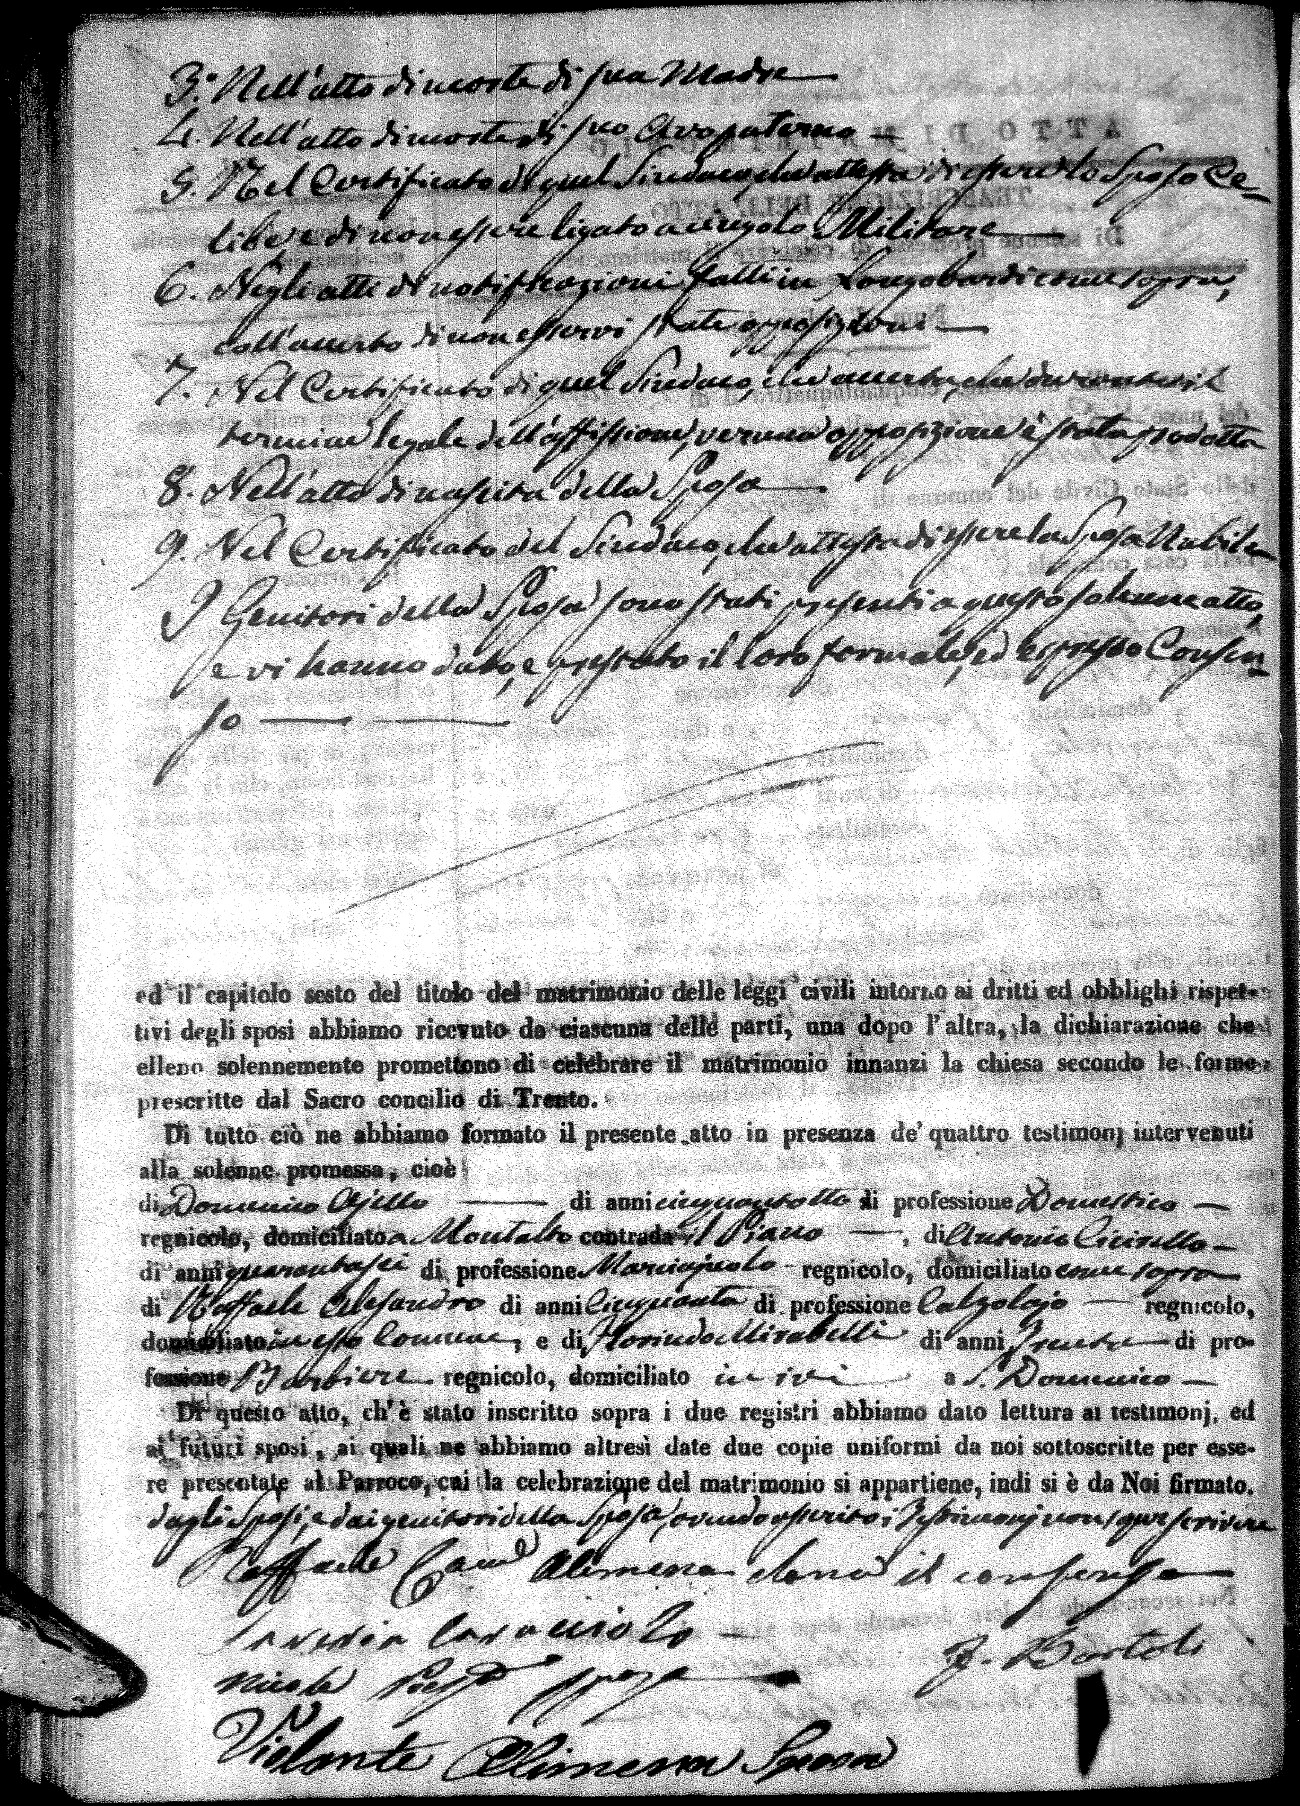 3.° Nell'atto di morte di sua Madre
4. Nell'atto di morte di suo Avo paterno
5. Nel Certificato di quel Sindaco, che attesta di essere lo Sposo Ce-
libe, e di non essere ligato a cingolo Militare
6. Negli atti di notificazioni fatti in Longobardi come sopra,
coll'accerto di non esservi state opposizioni
7. Nel Certificato di quel Sindaco, che accerta, che durante il
termine legale dell'affissione, veruna opposizione è stata prodotta
8. Nell'atto di nascita della Sposa
9. Nel Certificato del Sindaco, che attesta di essere la Sposa Nubile
I Genitori della Sposa sono stati presenti a questo solenne atto,
e vi hanno dato, e prestato il loro formale, ed espresso Consen-
so
ed il capitolo sesto del titolo del matrimonio delle leggi civili intorno ai dritti ed obblighi rispet-
tivi degli sposi abbiamo ricevuto da ciascuna delle parti, una dopo l'altra, la dichiarazione che
elleno solennemente promettono di celebrare il matrimonio innanzi la chiesa secondo le forme
prescritte dal Sacro concilio di Trento.
Di tutto ciò ne abbiamo formato il presente atto in presenza de' quattro testimonj intervenuti
alla solenne promessa, cioè
di Domenico Ajello di anni cinquantotto di professione Domestico
regnicolo, domiciliato a Montalto contrada il Piano, di Antonio Cicirello
di anni quarantasei di professione regnicolo, domiciliato come sopra
di Raffaele Alesandro di anni Cinquanta di professione Calzolajo regnicolo,
domiciliato in esso Comune, e di Florindo Mirabelli di anni Trenta di pro-
fessione Barbiere regnicolo, domiciliato in ivi a S. Domenico
Di questo atto, ch'è stato inscritto sopra i due registri abbiamo dato lettura ai testimonj, ed
ai futuri sposi, ai quali ne abbiamo altresì date due copie uniformi da noi sottoscritte per esse-
re presentate al Parroco, cui la celebrazione del matrimonio si appartiene, indi si è da Noi firmato.
dagli Sposi, e dai genitori della Sposa, avendo asserito i Testimonj non saper scrivere
Raffaele Alimena dona il consenso
Saveria Caracciolo
Nicola sposo
F. Bartoli
Violante Alimena Sposa